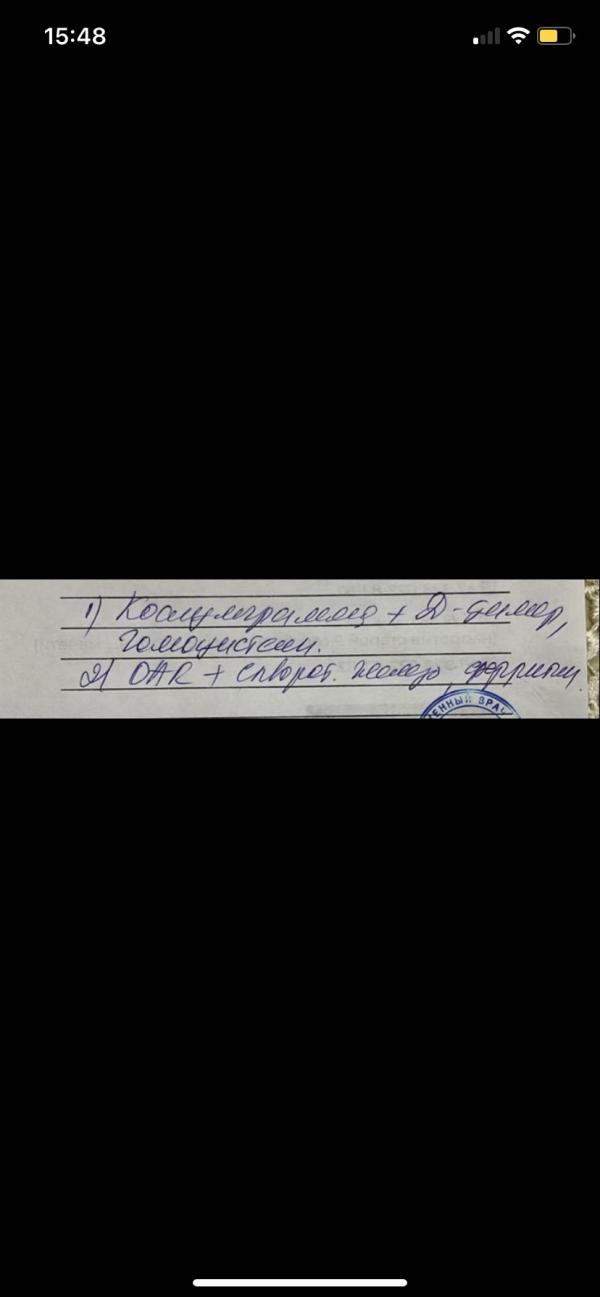 15:48
1) Коагулограмма + Д-димер,
Гомоцистеин.
2) ОАК + сыворот. железо, ферритин.
ЕННЫЙ ВРАЧ